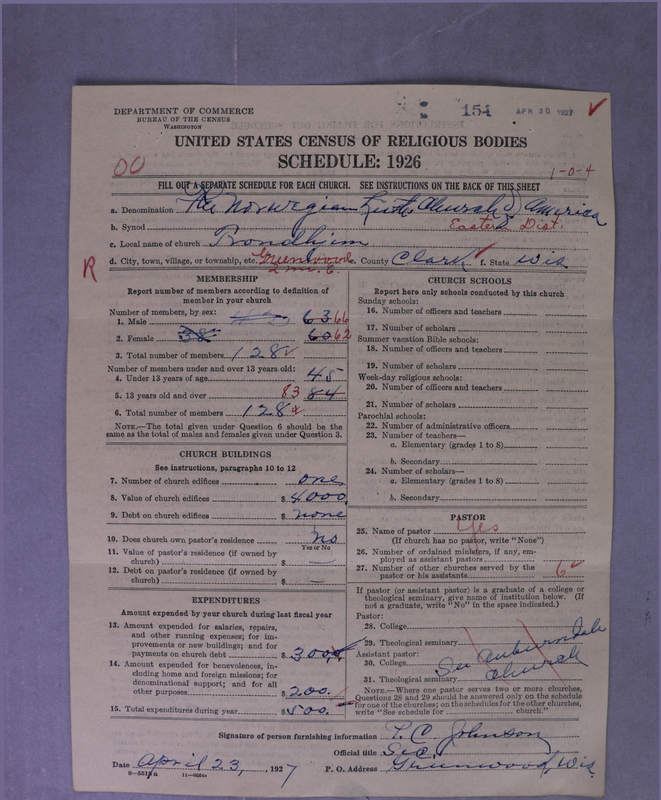 154 APR 30 1927
DEPARTMENT OF COMMERCE
BUREAU OF THE CENSUS
WASHINGTON
UNITED STATES CENSUS OF RELIGIOUS BODIES
SCHEDULE: 1926
00
1-0-4
FILL OUT A SEPARATE SCHEDULE FOR EACH CHURCH. SEE INSTRUCTIONS ON THE BACK OF THIS SHEET
a. Denomination The Norwegian Luth. Church of America
b. Synod Easter Dist.
c. Local name of church Trondhjim
d. City, town, village, or township, etc. Greenwood e. County Clark f. State Wis
R 2 mi. E.
MEMBERSHIP
Report number of members according to definition of
member in your church
Number of members, by sex:
1. Male 63 66
2. Female 38 60 62
3. Total number of members 128
Number of members under and over 13 years old:
4. Under 13 years of age 45
5. 13 years old and over 83 84
6. Total number of members 128
NOTE.—The total given under Question 6 should be
same as the total of males and females given under Question 3.
CHURCH BUILDINGS
See instructions, paragraphs 10 to 12
7. Number of church edifices one
8. Value of church edifices $ 4000.
9. Debt on church edifices $ none
10. Does church own pastor's residence No
Yes or No
11. Value of pastor's residence (if owned by
church) $ —
12. Debt on pastor's residence (if owned by
church) $ —
EXPENDITURES
Amount expended by your church during last fiscal year
13. Amount expended for salaries, repairs,
and other running expenses; for im-
provements or new buildings; and for
payments on church debt $ 300
14. Amount expended for benevolences, in-
cluding home and foreign missions; for
denominational support; and for all
other purposes $ 200.
15. Total expenditures during year $ 500.
CHURCH SCHOOLS
Report here only schools conducted by this church
Sunday schools:
16. Number of officers and teachers
17. Number of scholars
Summer vacation Bible schools:
18. Number of officers and teachers
19. Number of scholars
Week-day religious schools:
20. Number of officers and teachers
21. Number of scholars
Parochial schools:
22. Number of administrative officers
23. Number of teachers—
a. Elementary (grades 1 to 8)
b. Secondary
24. Number of scholars—
a. Elementary (grades 1 to 8)
b. Secondary
PASTOR
25. Name of pastor Yes
(If church has no pastor, write "None")
26. Number of ordained ministers, if any, em-
ployed as assistant pastors
27. Number of other churches served by the
pastor or his assistants 6
If pastor (or assistant pastor) is a graduate of a college or
theological seminary, give name of institution below. (If
not a graduate, write "No" in the space indicated.)
Pastor:
28. College
29. Theological seminary
Assistant pastor:
30. College See Auburndale
31. Theological seminary Church
NOTE.—Where one pastor serves two or more churches,
Questions 28 and 29 should be answered only on the schedule
for one of the churches; on the schedules for the other churches,
write "See schedule for church."
Signature of person furnishing information T. C. Johnson
Official title Sec.
Date April 23, 1927 P. O. Address Greenwood, Wis.